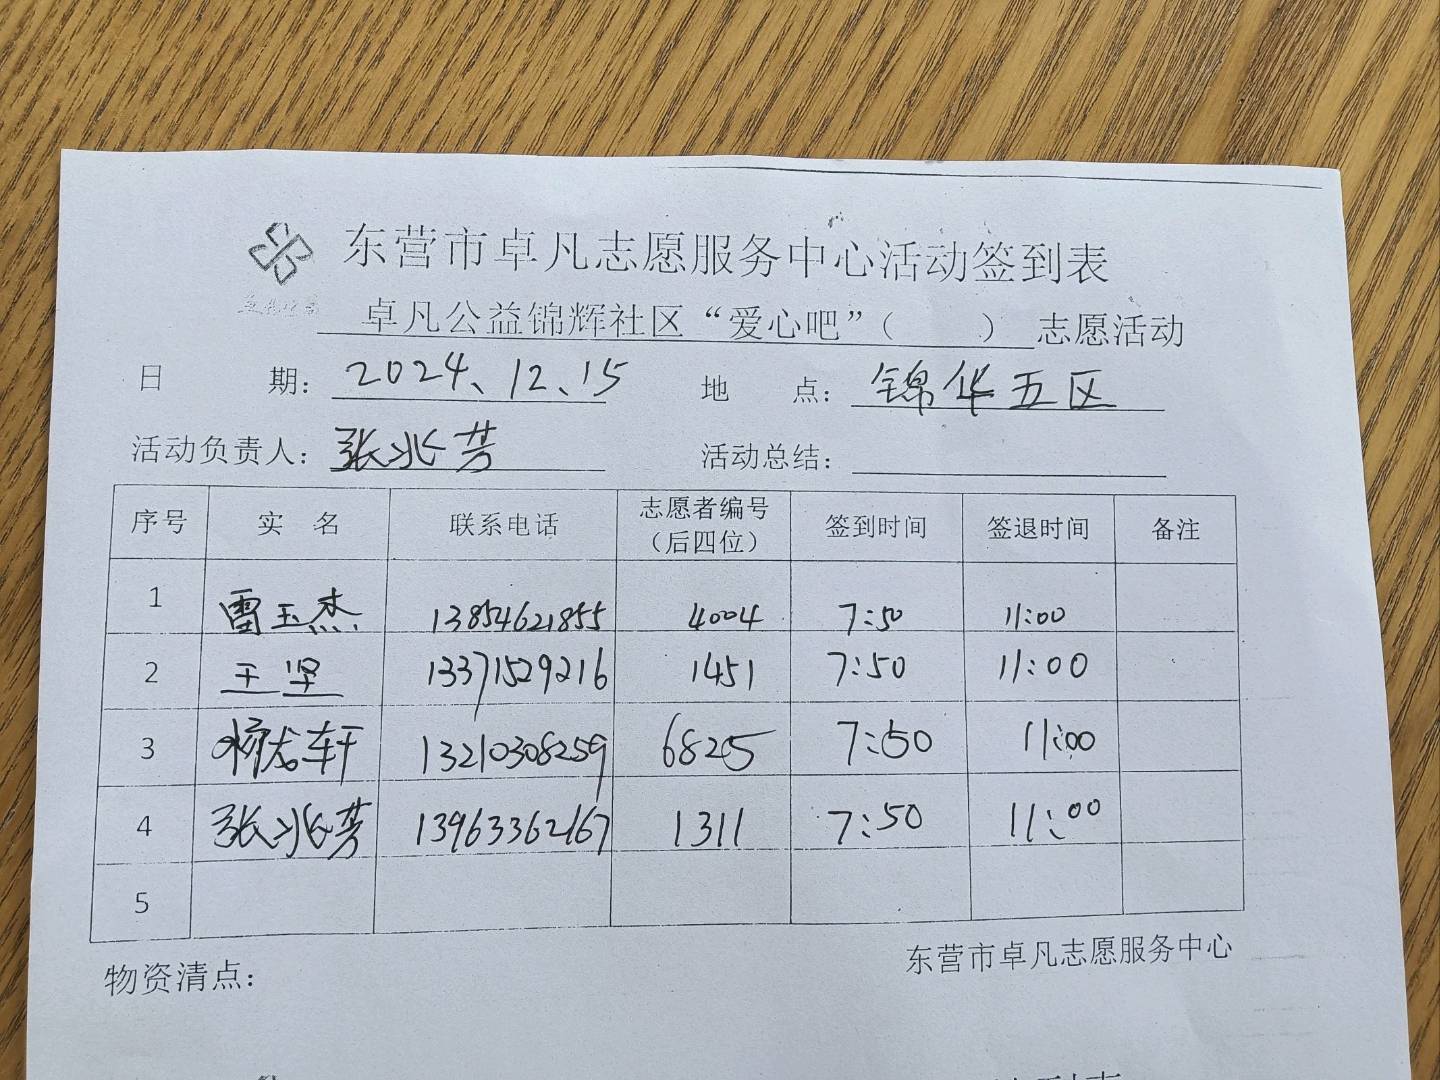 东营市卓凡志愿服务中心活动签到表
卓凡公益锦辉社区“爱心吧”（ ）志愿活动
日 期：2024、12、15 地 点：锦华五区
活动负责人：张兆芳 活动总结：
序号 实 名 联系电话 志愿者编号（后四位） 签到时间 签退时间 备注
1 雷玉杰 13854621855 4004 7:50 11:00
2 王坚 13371529216 1451 7:50 11:00
3 轩 13210308259 6825 7:50 11:00
4 张兆芳 13963362167 1311 7:50 11:00
5
物资清点： 东营市卓凡志愿服务中心